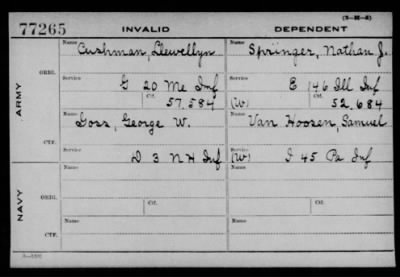 (3-M-8)
77265 INVALID DEPENDENT
Name Name
Cushman, Llewellyn Springer, Nathan J.
ORIG.
Service Service
G 20 Me Inf E 146 Ill Inf
Ctf. Ctf.
57,584 (W) 52,684
ARMY
Name Name
Goss, George W. Van Hoosen, Samuel
CTF.
Service Service
D 3 NH Inf (W) I 45 Pa Inf
Name Name
ORIG.
Ctf. Ctf.
NAVY
Name Name
CTF.